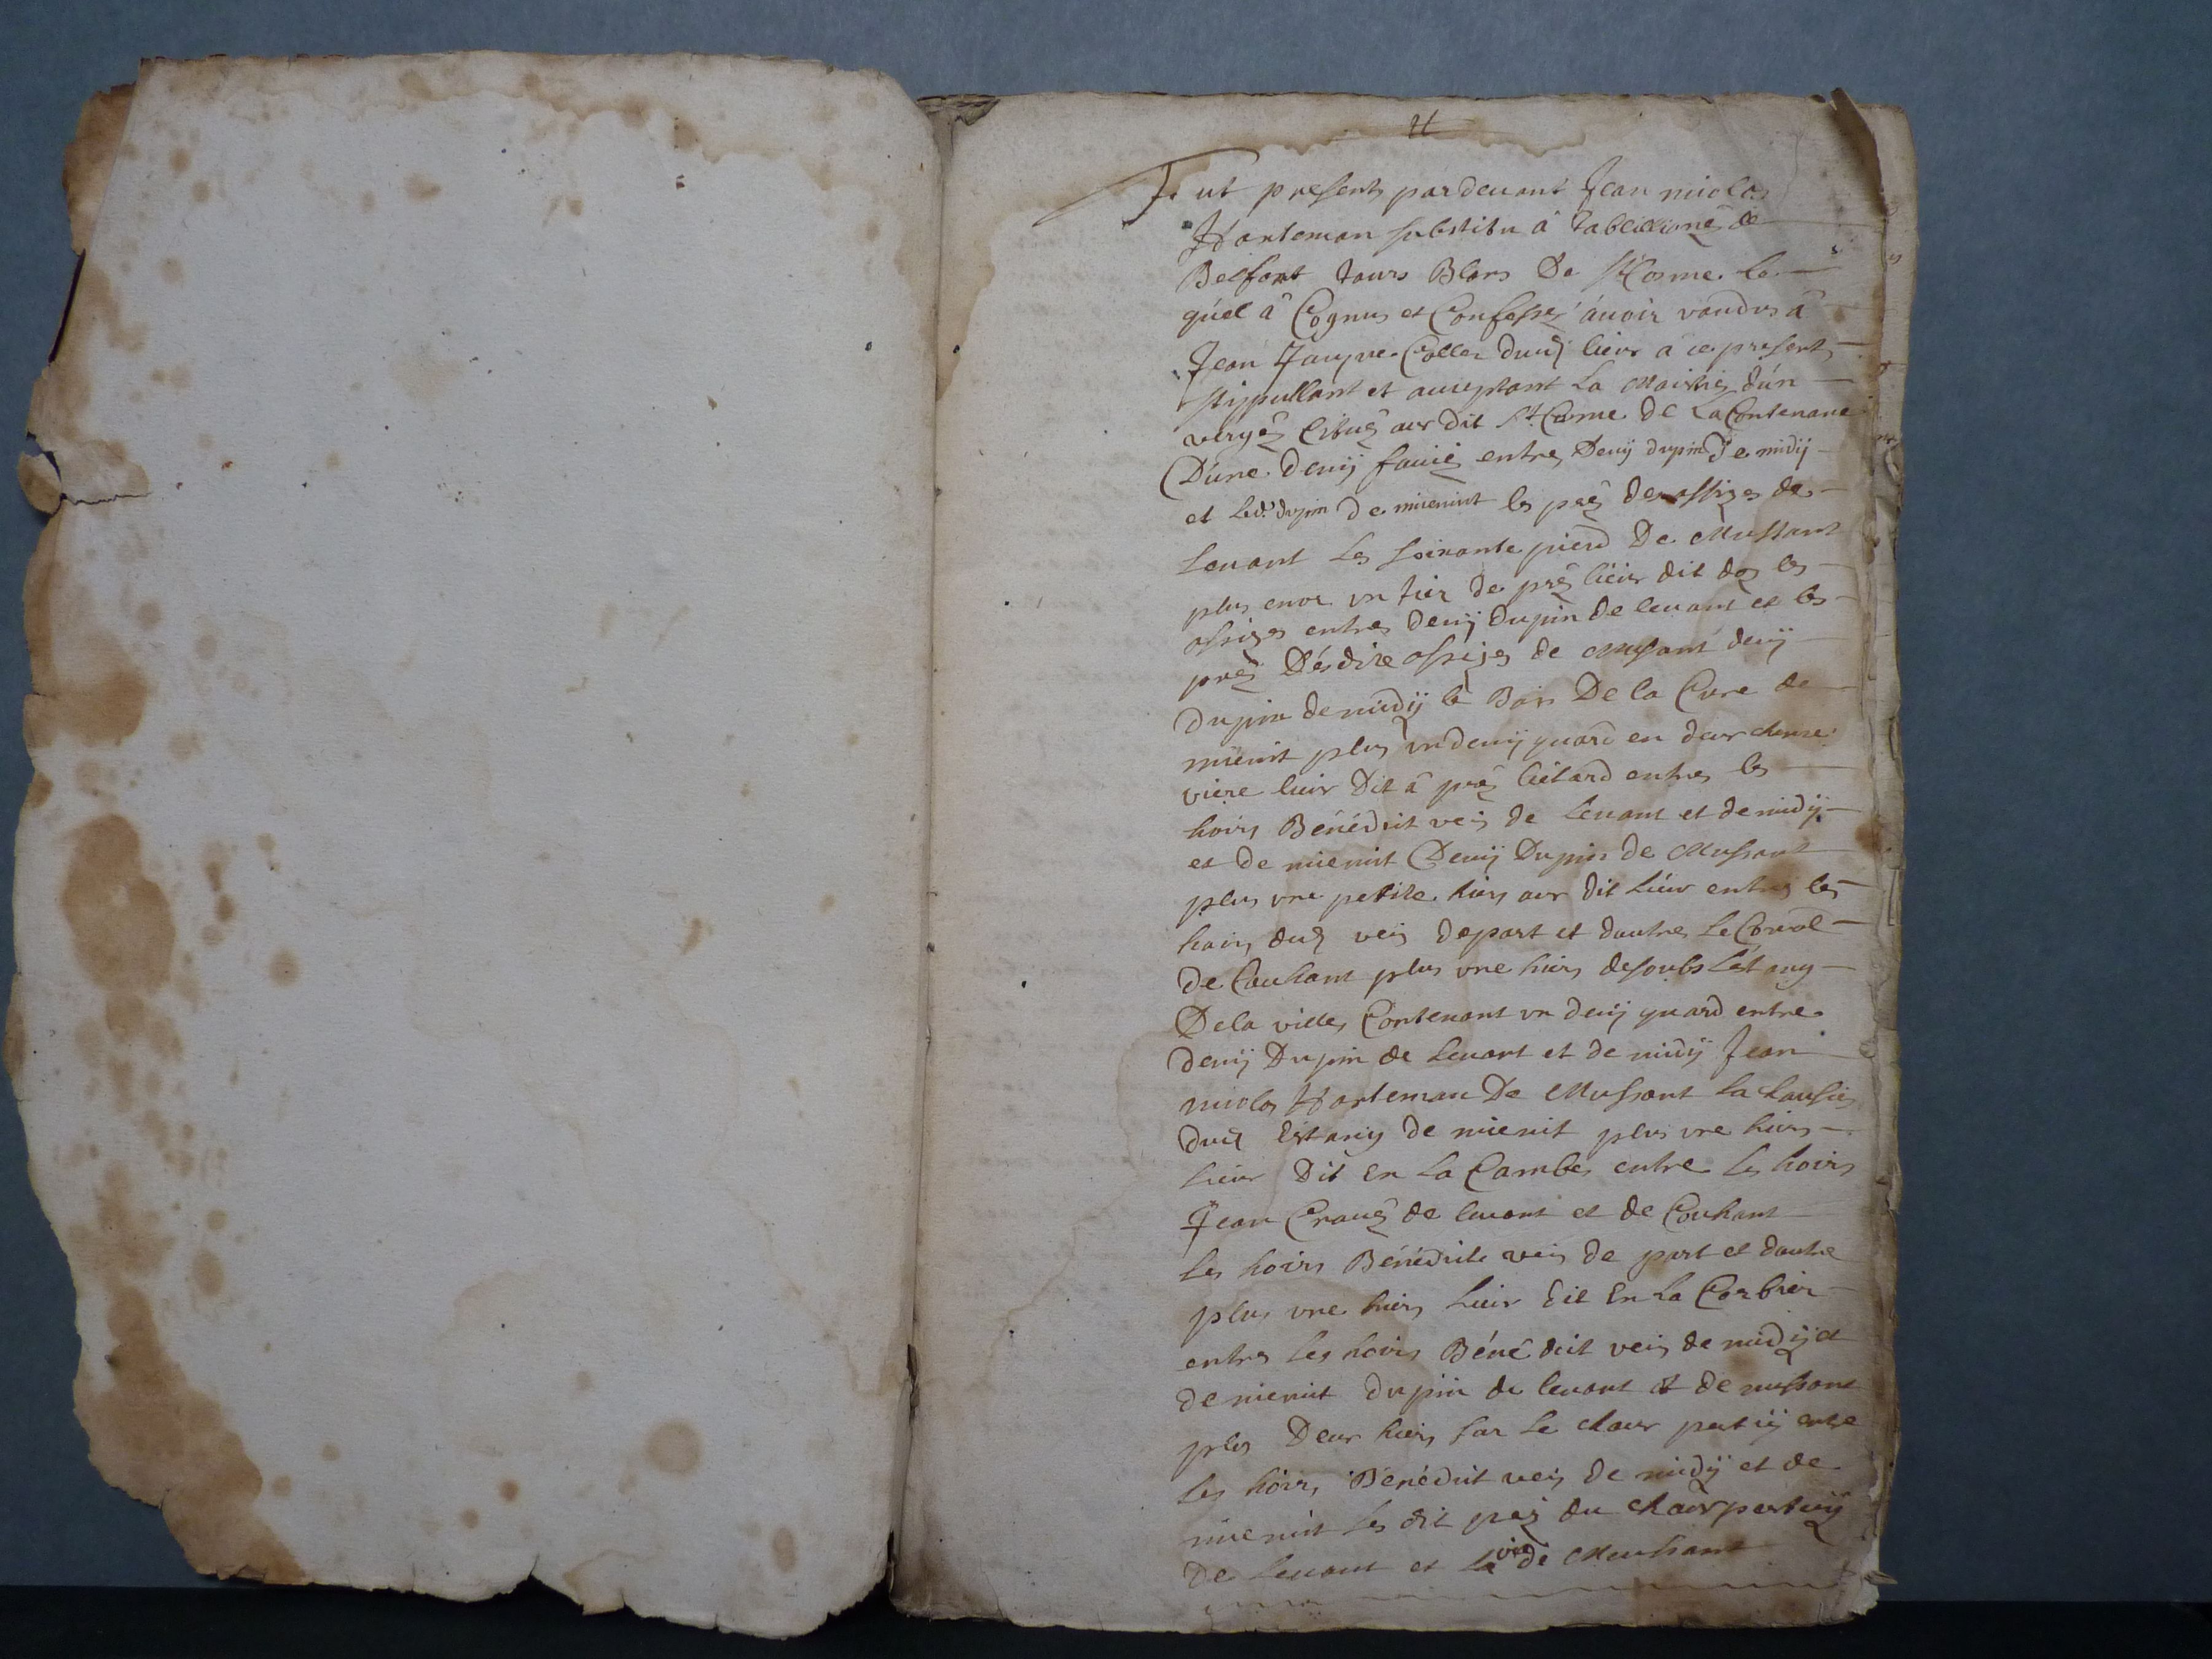 Fut present pardevant Jean nicolas
Harteman substitu â Tabellioné de
Belfort Jours Blans De St Cosme le
quel â Cognus et Confessez avoir vandus â
Jean Jaque Coller dud lieu â ce present
stippullant et acceptant La Moistiez d'un
vergéz Cituéz aux dit St Come De La Contenance
D'une demij fauiéz entres Demij dupin De midÿ
et led.t dupin De mienuit les préz des assizes de
levant Les soixante pierd De Mussant
plus encor un tier de préz lieux dit dos les
assizes entres demij Dupin de levant et les
préz Désdite assizes de mussant demij
Dupin de midÿ le Bois De la Cure de
mienuit plus un demij quard en deux chene
viere lieux Dit â préz liétard entres les
hoirs Bénédict veis de Levant et de midÿ
et de mienuit Demij Dupin de Mussant
plus une petite hiers aux dit Lieux entres les
hoirs dud veis de part et dautres Le Corrol
De Couchant plus une hiers desoubs Létang
De la villes Contenant un demij quard entre
demij Dupin de Levant et de midÿ Jean
nicolas Harteman De Mussant La Chausiés
dud Estang de mienuit plus une hiers
Lieux Dit En La Combes entre Les hoirs
Jean Cravéz de levant et de Couchant
Les hoirs Bénédicte veis de part et dautre
plus une hiers Lieux dit En La Corbier
entres Les hoirs Bénédict veis de midÿ et
de mienuit Dupin de levant et de mussant
plus Deux hiers sur Le chaux pertuij entre
Les hoirs Bénédict veis de midÿ et de
mienuit Les dit préz du chaux pertuij
De Levant et La vie de Muchant